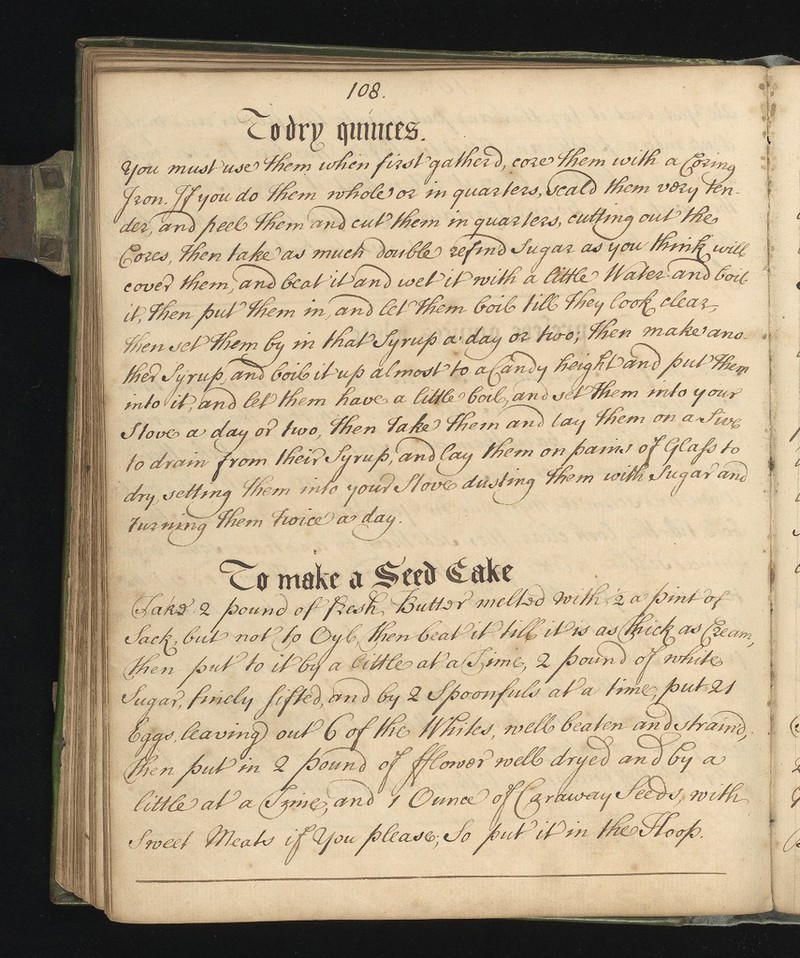 108.
To dry quinces.
You must use them when first gatherd, core them with a Coring
Iron. If you do them whole or in quarters, scald them very ten-
der, and peel them and cut them in quarters, cutting out the
Cores, Then take as much double refind Sugar as you think will
cover them, and beat it and wet it with a little Water and boil
it, Then put them in, and let them boil till they look clear,
Then set them by in that Syrup a day or two; Then make ano-
ther Syrup, and boil it up almost to a Candy height and put them
into it, and let them have a little boil, and set them into your
Stove a day or two, Then take them and lay them on a Sive
to drain from their Syrup, and lay them on pains of Glass to
dry, setting them into your Stove dusting them with Sugar and
turning them twice a day.
To make a Seed Cake
Take 2 pound of fresh Butter melted with ½ a pint of
Sack, but not to Oyl, then beat it till it is as thick as Cream,
then put to it by a little at a Time, 2 pound of white
Sugar, finely sifted, and by 2 Spoonfuls at a time, put 21
Eggs, leaving out 6 of the Whites, well beaten and straind,
then put in 2 pound of fflower well dryed and by a
little at a Time, and 1 Ounce of Carraway Seeds, with
Sweet Meats if You please; So put it in the Hoop.